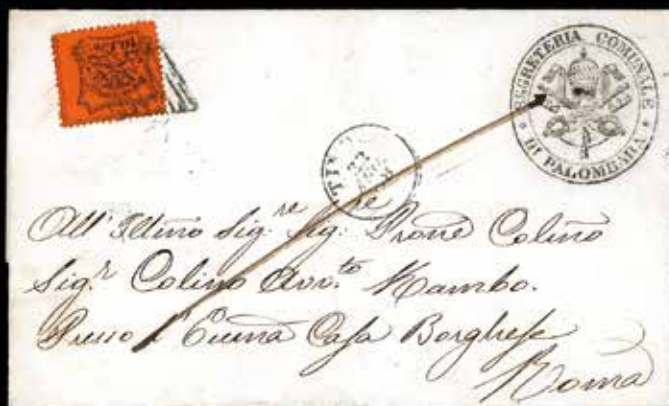 SEGRETERIA COMUNALE
DI PALOMBARA
All' Illmo Sig.re Sig.re Prone Colino
Sig.r Colino Avv.to Rambo.
Presso l' Eccma Casa Borghese
Roma